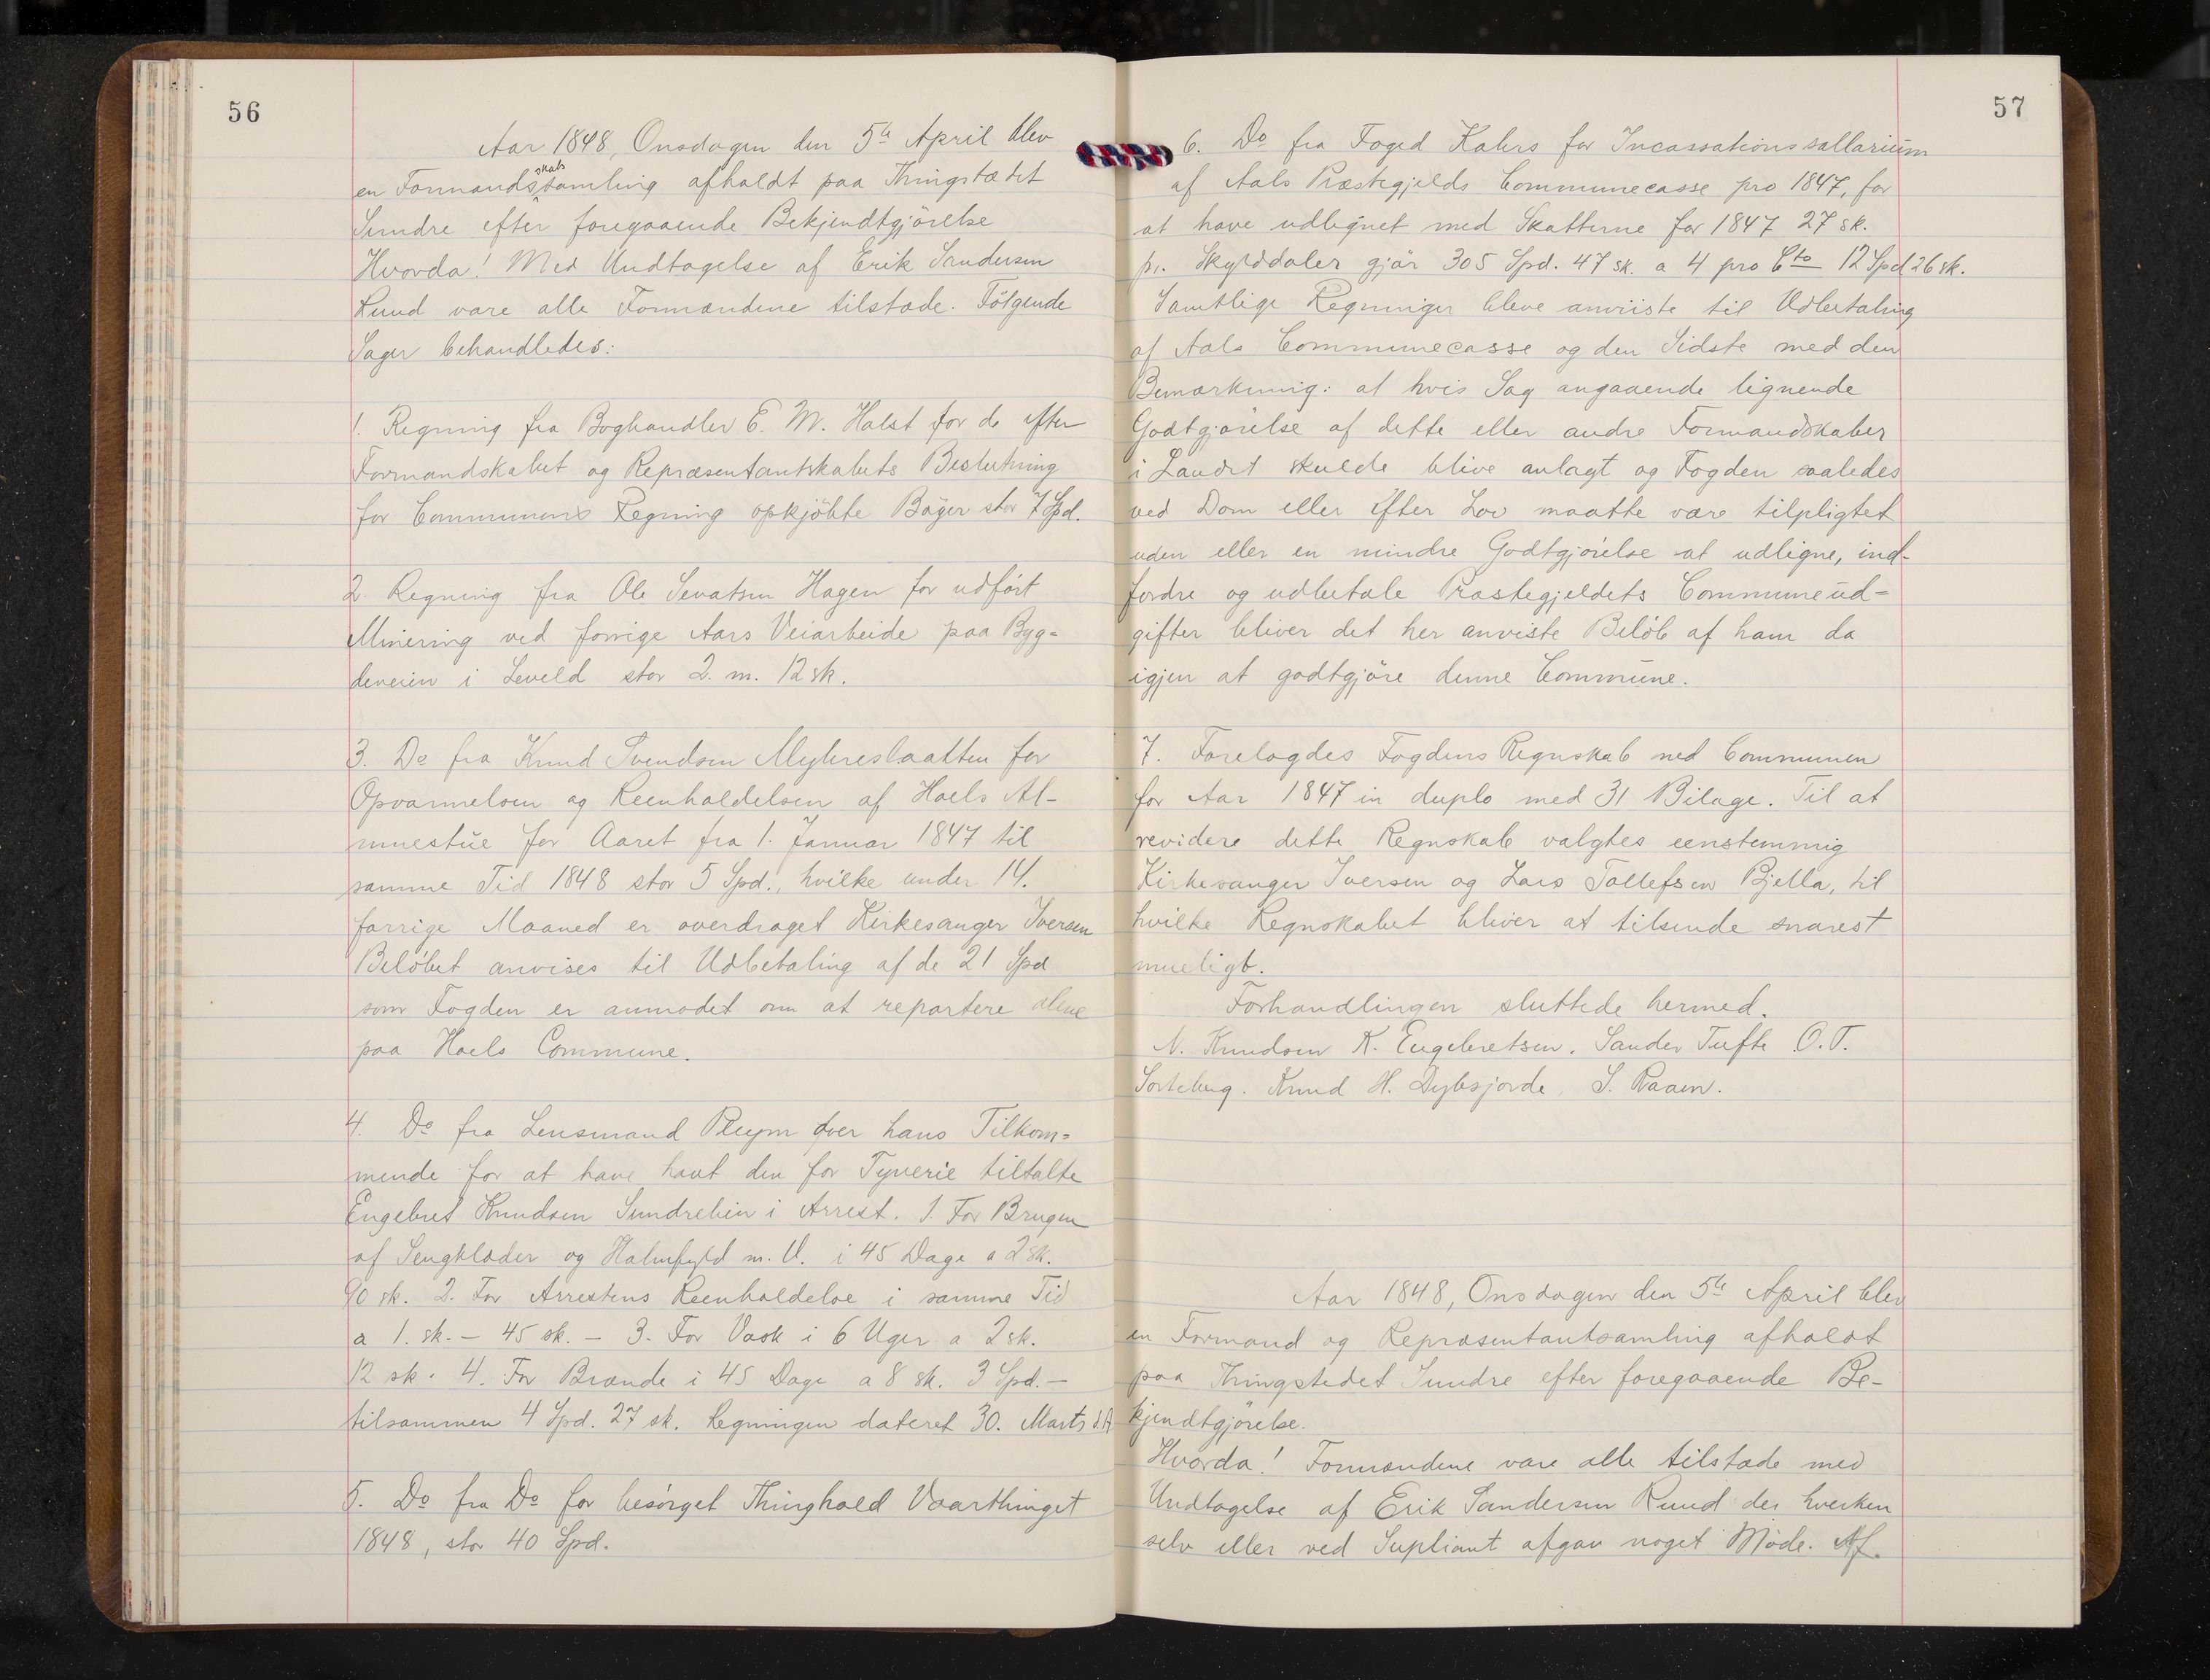 56
Aar 1848, Onsdagen den 5te April blev
en Formandsskabssamling afholdt paa Thingstædet
Sundre efter foregaaende Bekjendtgjörelse
Hvorda! Med Undtagelse af Erik Sandersen
Ruud vare alle Formændene tilstæde. Fölgende
Sager behandledes:
1. Regning fra Boghandler E. M. Holst for de efter
Formandskabet og Repræsentantskabets Beslutning
for Communens Regning opkjöbte Böger stor 7 Spd.
2. Regning fra Ole Sevatsen Hagen for udfört
Minering ved forrige Aars Veiarbeide paa Byg=
deveien i Leveld stor 2. m. 12 sk.
3. Do fra Knud Svendsen Myhreslaatten for
Opvarmelsen og Reenholdelsen af Hoels Al-
muestue for Aaret fra 1. Januar 1847 til
samme Tid 1848 stor 5 Spd., hvilke under 14.
forrige Maaned er overdraget Kirkesanger Iversen
Belöbet anvises til Udbetaling af de 21 Spd
som Fogden er anmodet om at repartere alene
paa Hoels Commune.
4. Do fra Lensmand Pleym over hans Tilkom=
mende for at have havt den for Tyverie tiltalte
Engebret Knudsen Sundreheien i Arrest. 1. For Brugen
af Sengklæder og Halmfyld m. V. i 45 Dage a 2 sk.
90 sk. 2. For Arrestens Reenholdelse i samme Tid
a 1. sk. – 45 sk. – 3. For Vask i 6 Uger a 2 sk.
12 sk. 4. For Brænde i 45 Dage a 8 sk. 3 Spd. –
tilsammen 4 Spd. 27 sk. Regningen dateret 30. Marts d.A
5. Do fra Do for besörget Thinghold Vaarthinget
1848, stor 40 Spd.
57
6. Do fra Foged Kahrs for Incassationssallarium
af Aals Præstegjelds Communecasse pro 1847, for
at have udlignet med Skatterne for 1847 27 sk.
pr. Skylddaler gjör 305 Spd. 47 sk. a 4 pro Cto 12 Spd 26 sk.
Samtlige Regninger bleve anviiste til Udbetaling
af Aals Communecasse og den Sidste med den
Bemærkning: at hvis Sag angaaende lignende
Godtgjörelse af dette eller andre Formandskaber
i Landet skulde blive anlagt og Fogden saaledes
ved Dom eller efter Lov maatte være tilpligtet
uden eller en mindre Godtgjörelse at udligne, ind-
fordre og udbetale Præstegjeldets Communeud=
gifter bliver det her anviste Belöb af ham da
igjen at godtgjöre denne Commune.
7. Forelagdes Fogdens Regnskab med Communen
for Aar 1847 in duplo med 31 Bilage. Til at
revidere dette Regnskab valgtes eenstemmig
Kirkesanger Iversen og Lars Tollefsen Bjella, til
hvilke Regnskabet bliver at tilsende snarest
mueligt.
Forhandlingen sluttede hermed.
N. Knudsen K. Engebretsen. Sander Tufte O.T.
Sorteberg. Knud H. Dybsjorde. S. Raaen.
Aar 1848, Onsdagen den 5te April blev
en Formand og Repræsentantsamling afholdt
paa Thingstedet Sundre efter foregaaende Be-
kjendtgjörelse.
Hvorda! Formændene vare alle tilstæde med
Undtagelse af Erik Sandersen Ruud der hverken
selv eller ved Supliant afgav noget Möde. Af